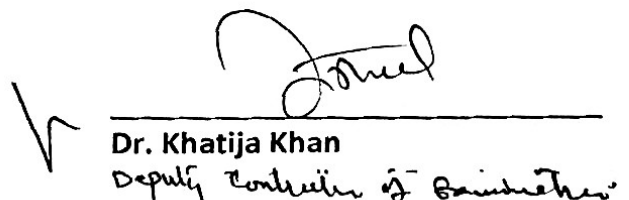 Dr. Khatija Khan
Deputy Controller of Examinations